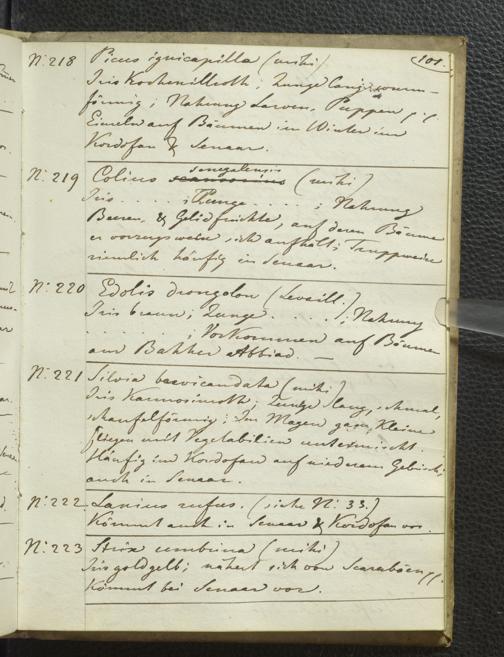 101.
N: 218 Picus ignicapilla (mihi)
Iris Kochenillroth; Zunge lang, wurm-
förmig; Nahrung Larven, Puppen,
Einzeln auf Bäumen im Winter im
Kordofan & Senaar.
N: 219 Colius senegalensis (mihi)
Iris . . . . ; Zunge . . . . ; Nahrung
Beeren, & , auf deren Bäume
er vorzugsweise sich aufhält; Truppweise
ziemlich häufig in Senaar.
N: 220 Edolis drongolon (Levaill.)
Iris braun; Zunge . . . . ; Nahrung
. . . . . . . ; Vorkommen auf Bäumen
am Bakher Abbiad. —
N: 221 Silvia brevicaudata (mihi)
Iris Karmosinroth; Zunge lang, schmal,
schaufelförmig; Im Magen ganz kleine
fliegen mit Vegetabilien untermischt.
Häufig im Kordofan auf niederem Gebüsch;
auch in Senaar.
N: 222 Lanius rufus. (siehe N: 33.)
Kömmt auch in Senaar & Kordofan vor.
N: 223 Strix umbrina (mihi)
Iris goldgelb; nährt sich von
Kömmt bei Senaar vor.